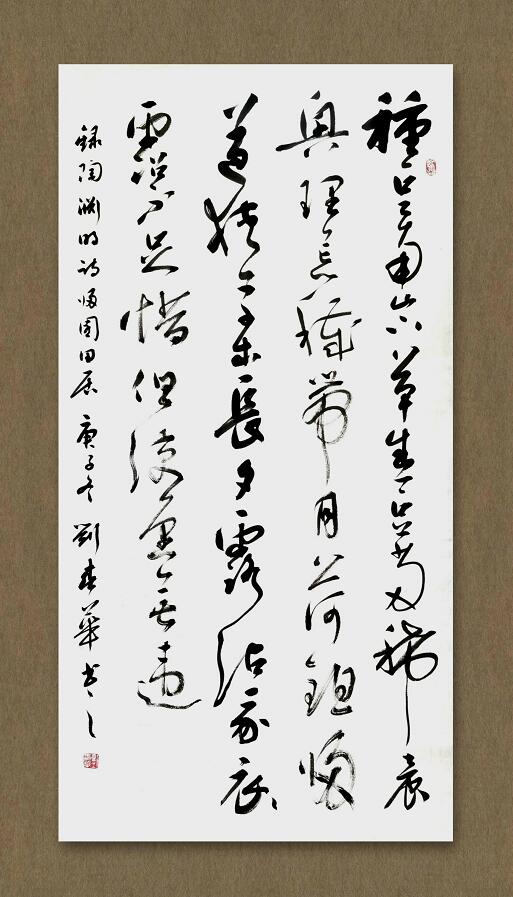 種豆南山下草生豆苗稀晨
興理荒穢帶月荷鋤歸
道狹草木長夕露沾我衣
霑不足惜但使願無違
錄陶淵明詩歸園田居 庚子冬 劉春華書之